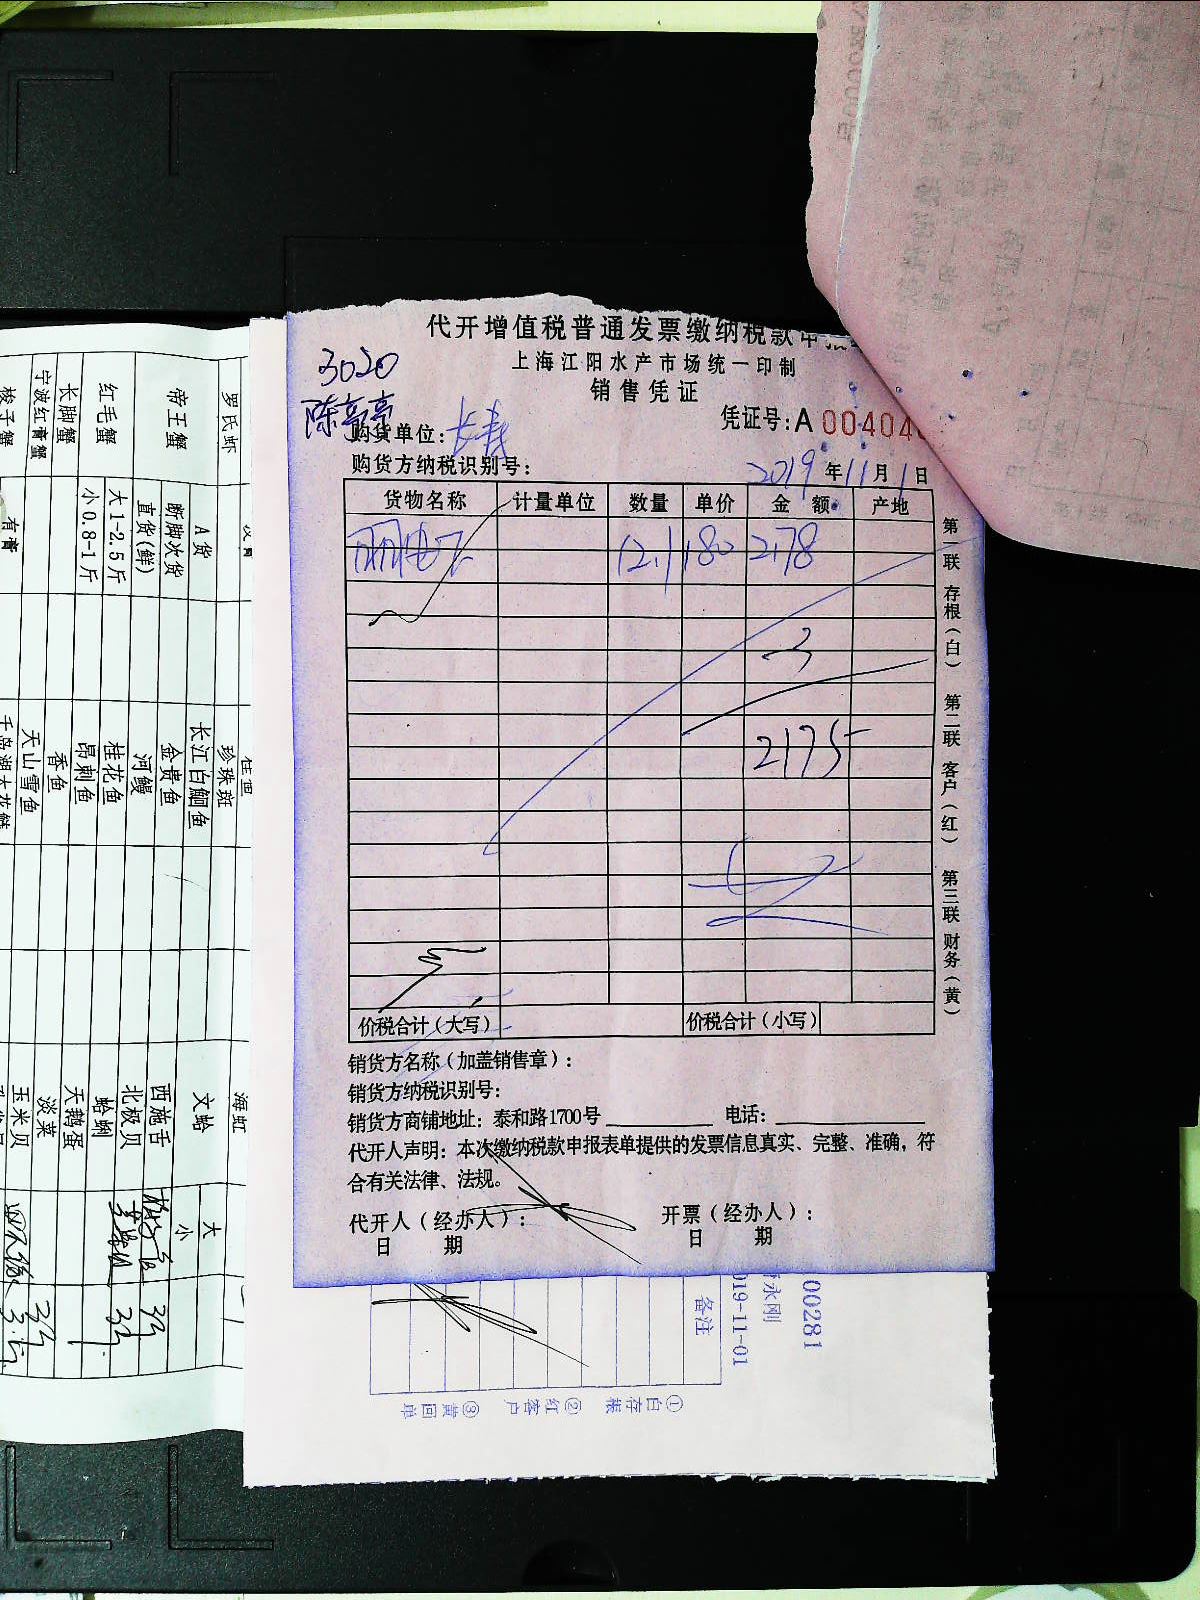 代开增值税普通发票缴纳税款申报
上海江阳水产市场统一印制
3020
销售凭证
陈亭亭
凭证号:A 00404
购货单位:
购货方纳税识别号:
2019年11月1日
货物名称 计量单位 数量 单价 金 额 产地
12.1 180 2178
-3
2175
价税合计(大写) 价税合计(小写)
销货方名称(加盖销售章):
销货方纳税识别号:
销货方商铺地址: 泰和路1700号 电话:
代开人声明: 本次缴纳税款申报表单提供的发票信息真实、完整、准确, 符
合有关法律、法规。
代开人(经办人): 开票(经办人):
日 期 日 期
第一联 存根(白) 第二联 客户(红) 第三联 财务(黄)
00281
永刚
019-11-01
备注
①白存根 ②红客户 ③黄回单
罗氏虾
帝王蟹
红毛蟹
长脚蟹
宁波红膏蟹
梭子蟹
A货
断脚次货
直货(鲜)
大1-2.5斤
小0.8-1斤
有膏
珍珠斑
长江白鮰鱼
金贵鱼
河鳗
桂花鱼
昂刺鱼
香鱼
天山雪鱼
千岛湖大花鲢
海虹
文蛤
西施舌
北极贝
蛤蜊
天鹅蛋
淡菜
玉米贝
大
小